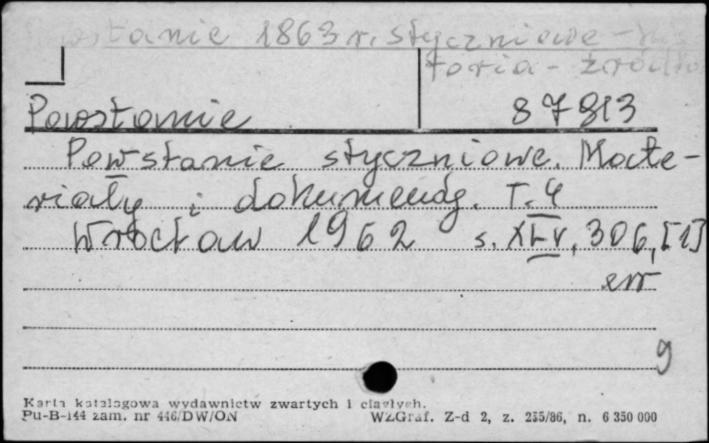 Powstanie 1863 r. styczniowe - his
toria - źródła
Powstanie
87813
Powstanie styczniowe. Mate-
riały i dokumenty. T. 4
Wrocław 1962 s. XLV, 306, [1]
err
9
Karta katalogowa wydawnictw zwartych i ciągłych.
Pu-B-144 zam. nr 446/DW/ON WZGraf. Z-d 2, z. 235/86, n. 6 350 000